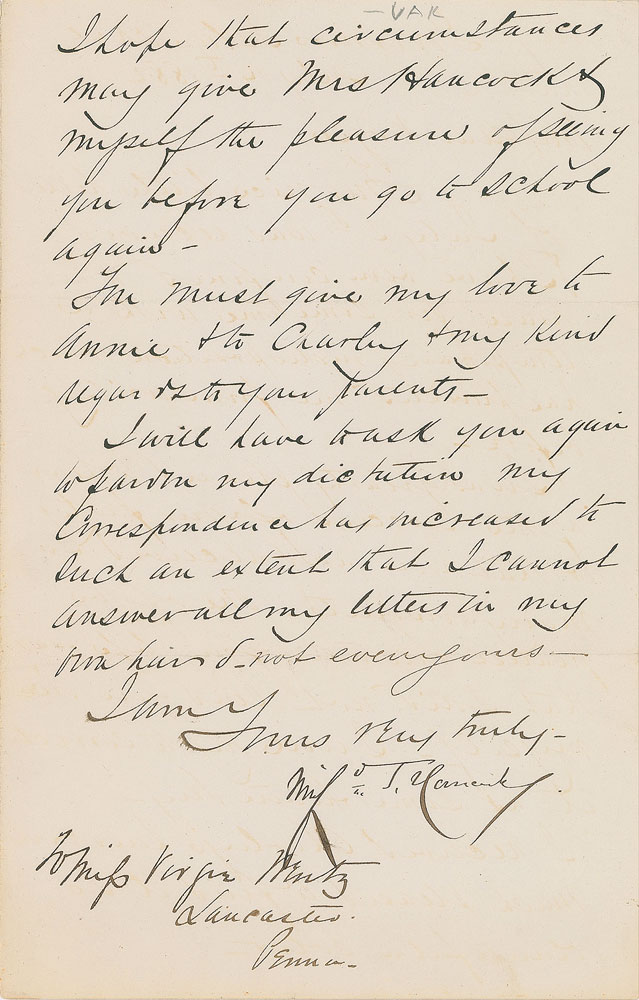 - VAR
I hope that circumstances
may give Mrs Hancock &
myself the pleasure of seeing
you before you go to school
again -
You must give my love to
Annie & to Charley & my kind
regards to your parents -
I will have to ask you again
to pardon my dictation my
Correspondence has increased to
such an extent that I cannot
answer all my letters in my
own hand - not even yours -
I am
Yours very truly -
Winfd S. Hancock.
To Miss Virgie Wentz
Lancaster.
Penna -